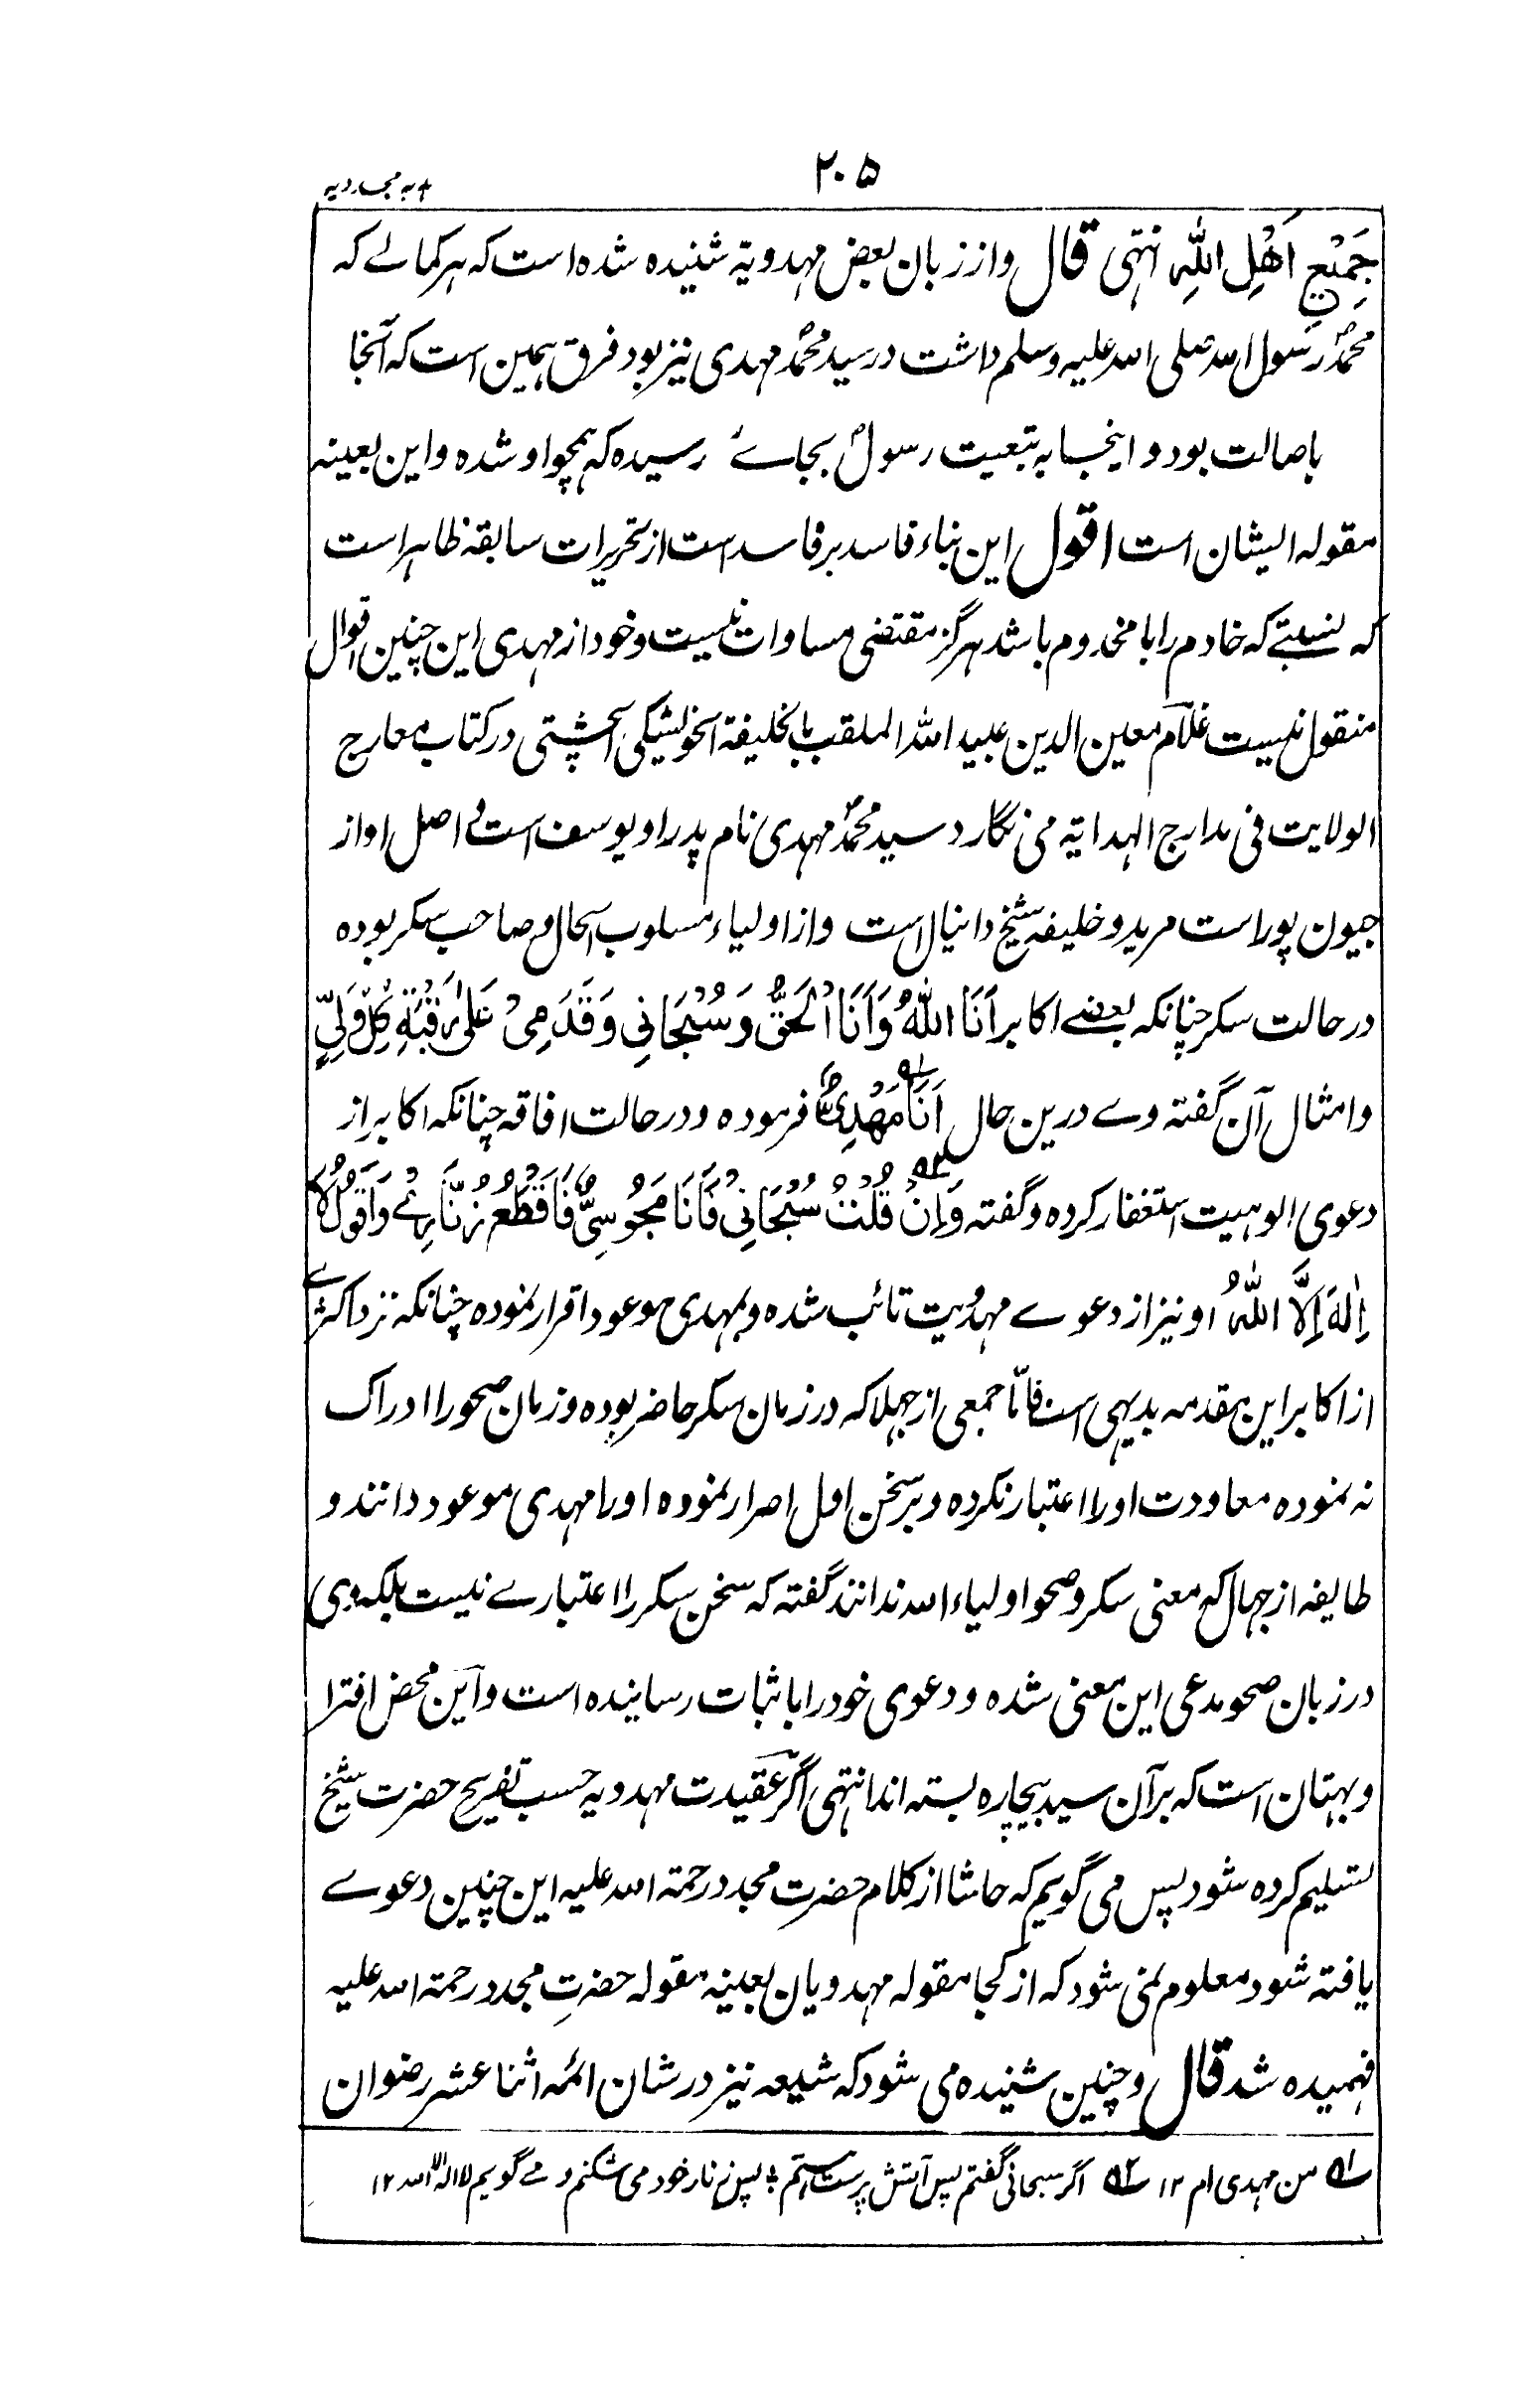 ۲۰۵
جَمِيْعِ اَهْلِ اللهِ انتهى قال و از زبان بعض مهدویة شنیده شده است که هر کمالے که
محمدؐ رسول الله صلی الله علیه وسلم داشت در سید محمدؐ مهدی نیز بود فرق همین است که آنجا
باصالت بود و اینجا به تبعیت رسولؐ بجاۓ رسیده که همچو او شده و این بعینه
مقوله ایشان است اقول این بناء فاسد بر فاسد است از تحریرات سابقه ظاهر است
که نسبتے که خادم را با مخدوم باشد هرگز مقتضی مساوات نیست و خود از مهدی این چنین اقوال
منقول نیست غلام معین الدین عبید الله الملقب بالخلیفة الخویشگی الچشتی در کتاب معارج
الولایت فی مدارج الهدایة می نگارد سید محمدؐ مهدی نام پدر او یوسف است و اصل او از
جیون پور است مرید و خلیفه شیخ دانیال است و از اولیاء مسلوب الحال و صاحب سکر بوده
در حالت سکر چنانکه بعضے اکابر اَنَا اللهُ وَاَنَا الْحَقُّ وَسُبْحَانِی وَقَدَمِیْ عَلیٰ رَقَبَةِ کُلِّ وَلِیٍّ
و امثال آن گفته وے درین حال اَنَا مَهْدِیٌّ فرموده و در حالت افاقه چنانکه اکابر از
دعوی الوهیت استغفار کرده و گفته وَاِنْ قُلْتُ سُبْحَانِیْ فَاَنَا مَجُوْسِیٌّ فَاَقْطَعُ زُنَّارِیْ وَاَقُوْلُ لَا
اِلٰهَ اِلَّا اللهُ او نیز از دعوے مهدویت تائب شده و بمهدی موعود اقرار نموده چنانکه نزد اکثرے
از اکابر این مقدمه بدیهی است فامّا جمعی از جهلا که در زمان سکر حاضر بوده و زمان صحو را ادراک
نه نموده معاودت او را اعتبار نکرده و بر سخن اول اصرار نموده او را مهدی موعود دانند و
طایفه از جهال که معنی سکر و صحو اولیاء الله ندانند گفته که سخن سکر را اعتبارے نیست بلکه وی
در زبان صحو مدعی این معنی شده و دعوی خود را باثبات رسانیده است و این محض افترا
و بهتان است که بر آن سید بیچاره بسته اند انتهی اگر عقیدت مهدویه حسب تفریح حضرت شیخ
تسلیم کرده شود پس می گویم که حاشا از کلام حضرت مجدد رحمة الله علیه این چنین دعوے
یافته شود معلوم نمی شود که از کجا مقوله مهدویان بعینه مقوله حضرتِ مجدد رحمة الله علیه
فهمیده شد قال و چنین شنیده می شود که شیعه نیز در شان ائمه اثنا عشر رضوان
۱ من مهدی ام ۱۲ ۲ اگر سبحانی گفتم پس آتش پرست هستم پس زنار خود می شکنم و مے گویم لا اله الا الله ۱۲